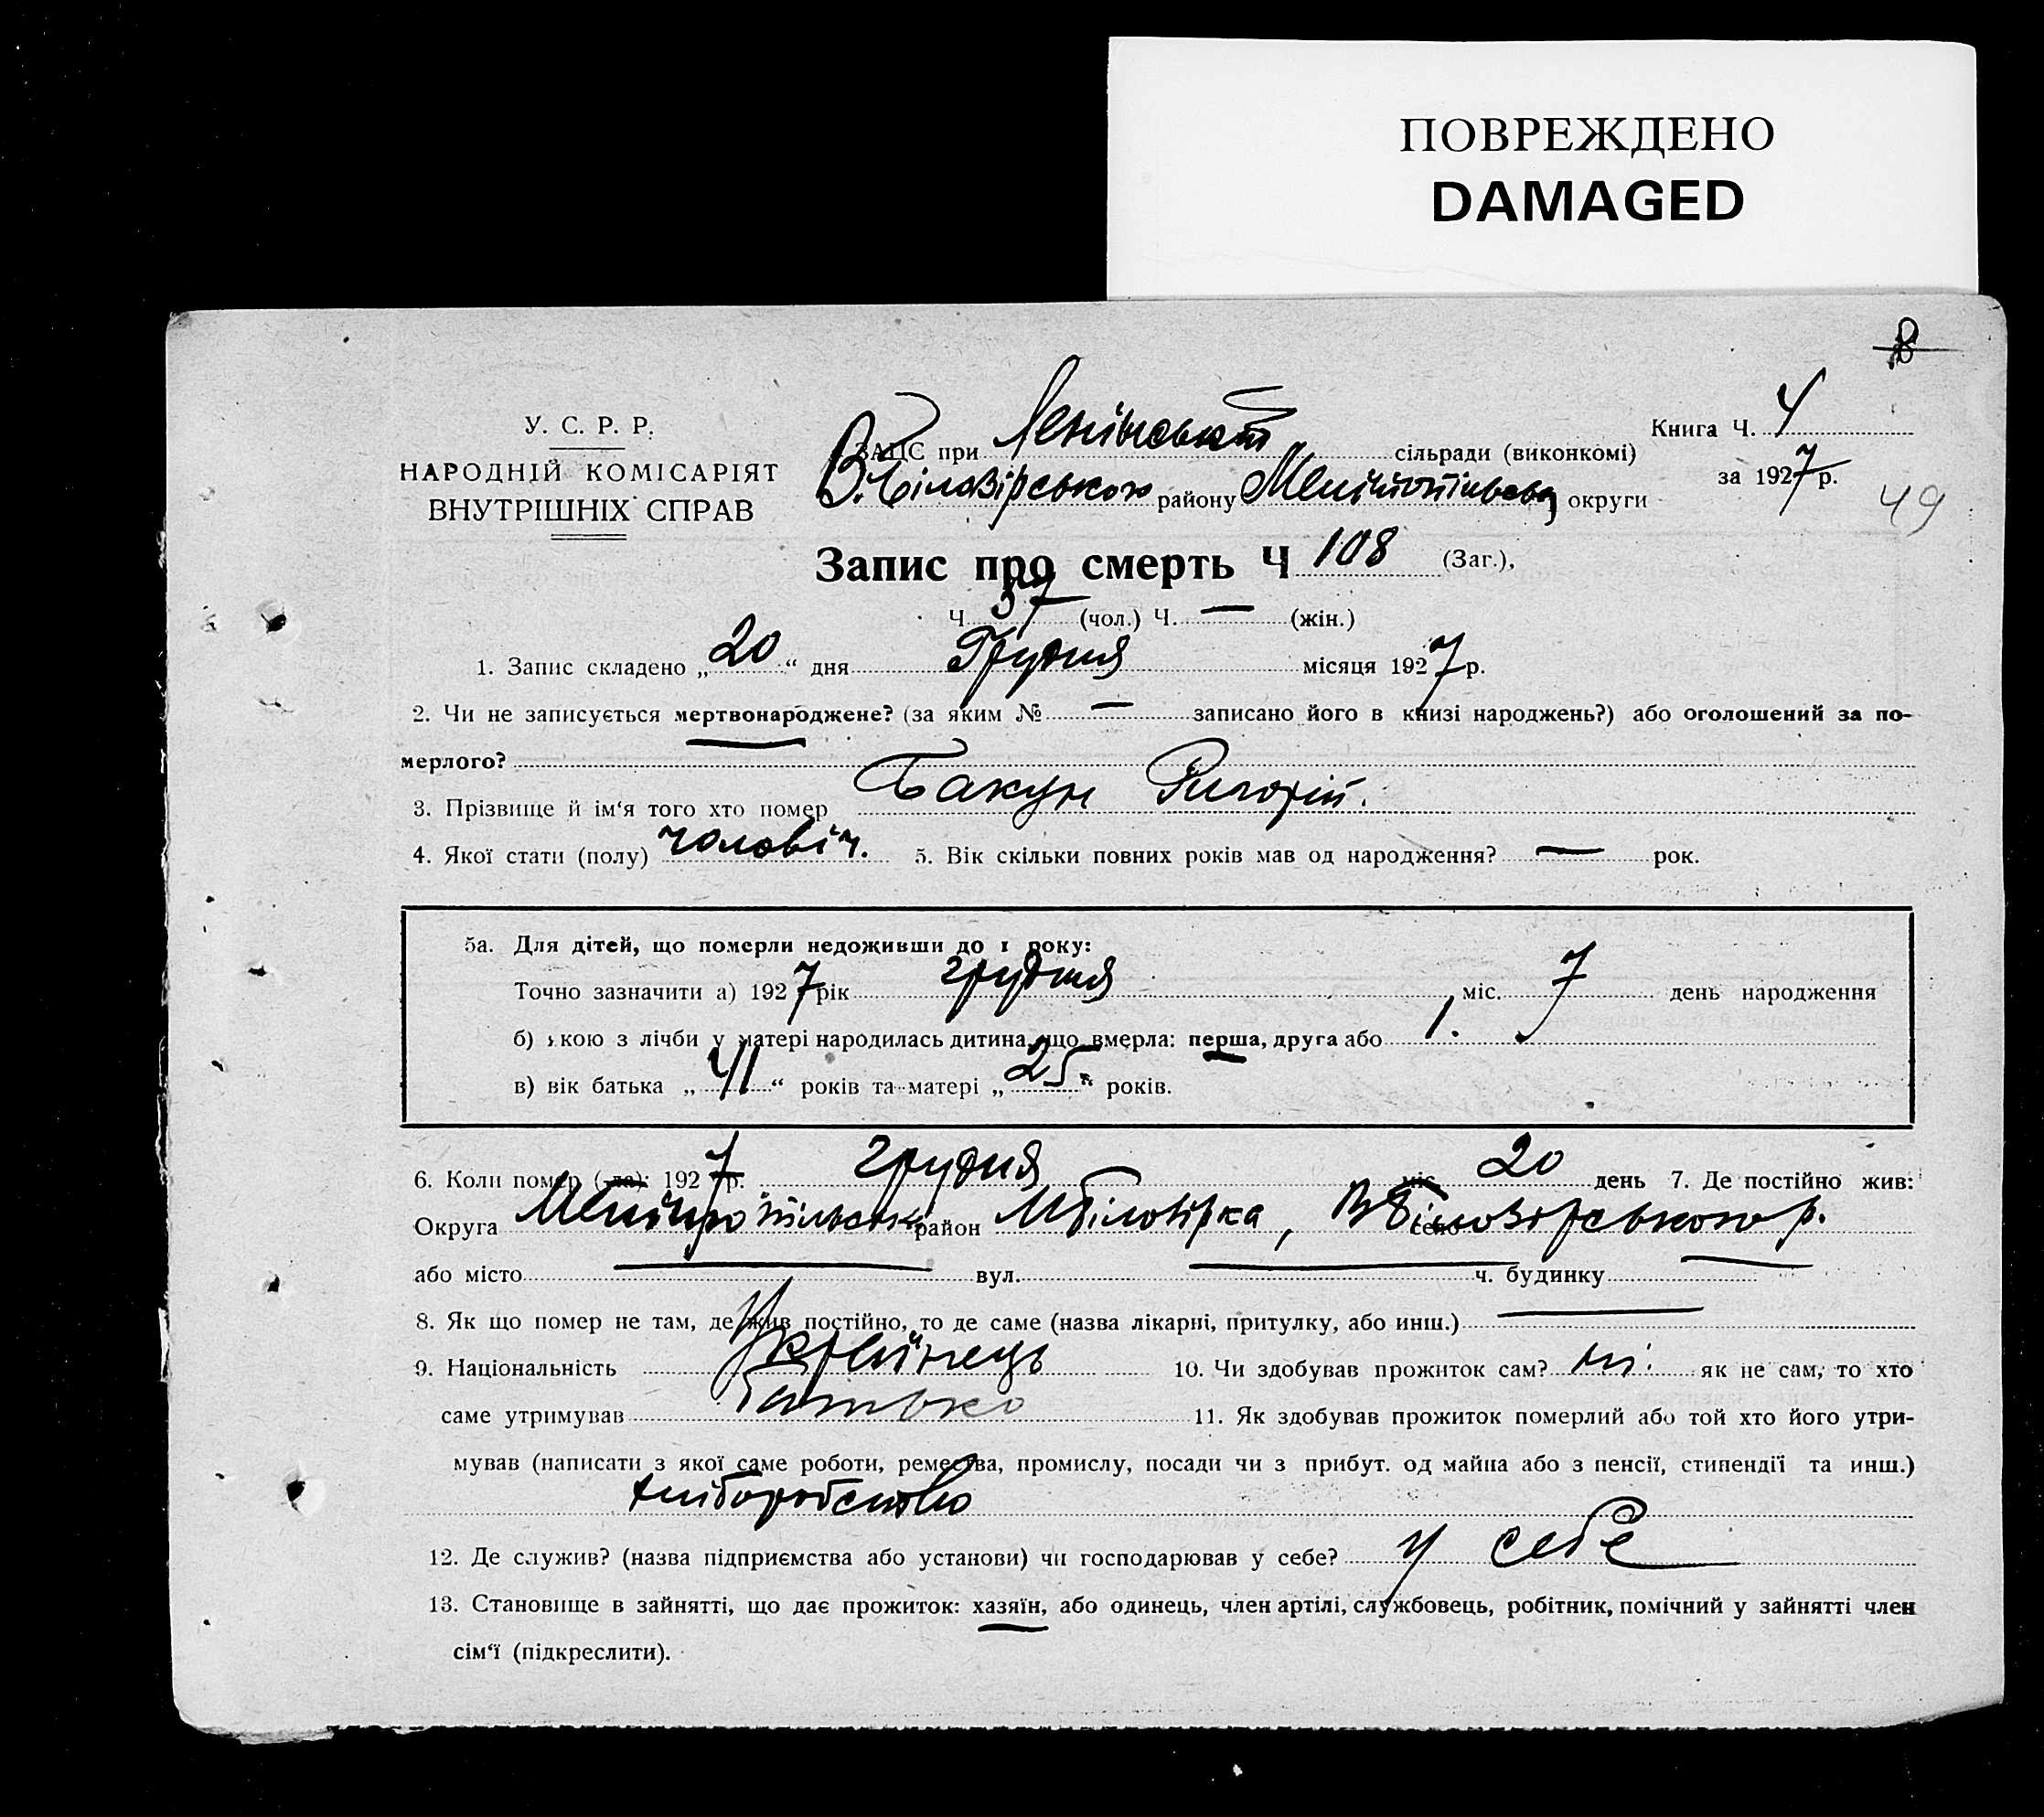 ПОВРЕЖДЕНО
DAMAGED
8
У. С. Р. Р.
НАРОДНІЙ КОМІСАРІЯТ
ВНУТРІШНІХ СПРАВ
ЗАЦС при Ленінській сільради (виконкомі)
В.Білозірського району Мелітопільськ округи
Книга Ч. 4
за 1927 р.
49
Запис про смерть Ч 108 (Заг.),
Ч. 57 (чол.) Ч. — (жін.)
1. Запис складено „20“ дня Грудня місяця 1927 р.
2. Чи не записується мертвонароджене? (за яким № — записано його в книзі народжень?) або оголошений за по-
мерлого?
3. Прізвище й ім‘я того хто помер Бакун Григорій.
4. Якої стати (полу) чоловіч. 5. Вік скільки повних років мав од народження? — рок.
5а. Для дітей, що померли недоживши до 1 року:
Точно зазначити а) 1927 рік грудня міс. 7 день народження
б) якою з лічби у матері народилась дитина, що вмерла: перша, друга або 1.
в) вік батька „41“ років та матері „25“ років.
6. Коли помер (-ла): 1927 р. грудня міс. 20 день 7. Де постійно жив:
Округа район МБілозірка, село ВБілозірського р.
або місто — вул. — ч. будинку —
8. Як що помер не там, де жив постійно, то де саме (назва лікарні, притулку, або инш.) —
9. Національність Українець 10. Чи здобував прожиток сам? ні. як не сам, то хто
саме утримував Батько 11. Як здобував прожиток померлий або той хто його утри-
мував (написати з якої саме роботи, ремества, промислу, посади чи з прибут. од майна або з пенсії, стипендії та инш.)
хліборобство
12. Де служив? (назва підприємства або установи) чи господарював у себе? у себе
13. Становище в зайнятті, що дає прожиток: хазяїн, або одинець, член артілі, службовець, робітник, помічний у зайнятті член
сім‘ї (підкреслити).